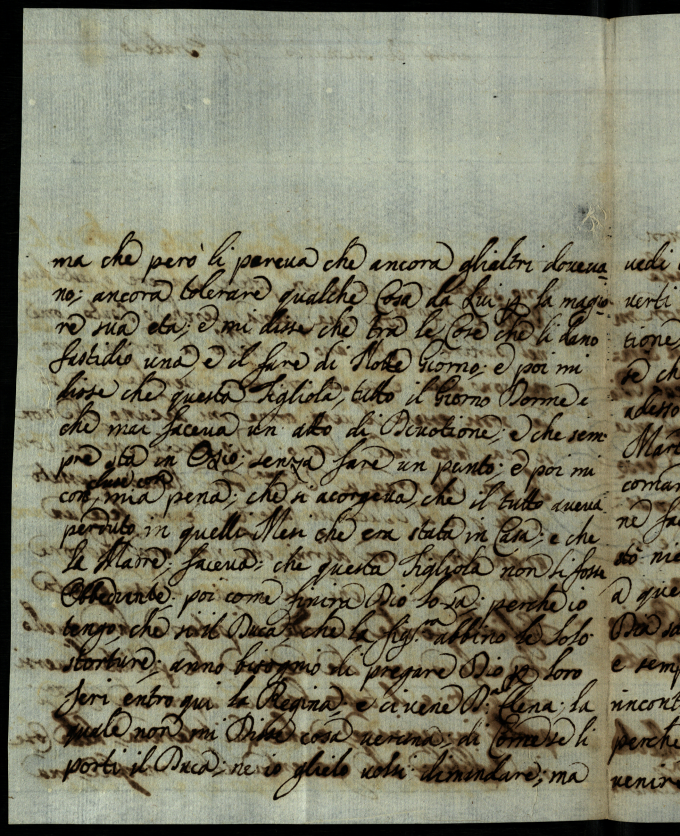 ma che però li pareva che ancora glialtri doveva
no; ancora tolerare qualche Cosa da Lui p la magio
re sua eta; e mi disse che tra le Cose che li dano
fastidio una, e il fare di Notte Giorno; e poi mi
disse che questa Figliola, tutto il Giorno Dorme e
che mai faceva un atto di Divotione; e che sem
pre sta in Ozio; senza fare un punto: e poi mi
disse con
con, mia pena; che si acorgeva, che il tutto aveva
perduto in quelli Mesi che era stata in Casa: e che
la Madre; faceva; che questa Figliola non li fosse
Obbediente: poi come finira Dio lo sa; perche io
tengo che si il Duca, che la figl.ª abbino le loro
storture; anno bisognio di pregare Dio p loro
Jeri entro qui la Regina: e ci vene D: Elena: la
quale non mi Disse cosa veruna; di Come se li
porti il Duca; ne io glielo volsi dimandare; ma
vedi
verti
tione,
se ch
adesso
Mart
contar
ne fa
sto nie
a que
Dio sa
e semp
rincont
perche
venire